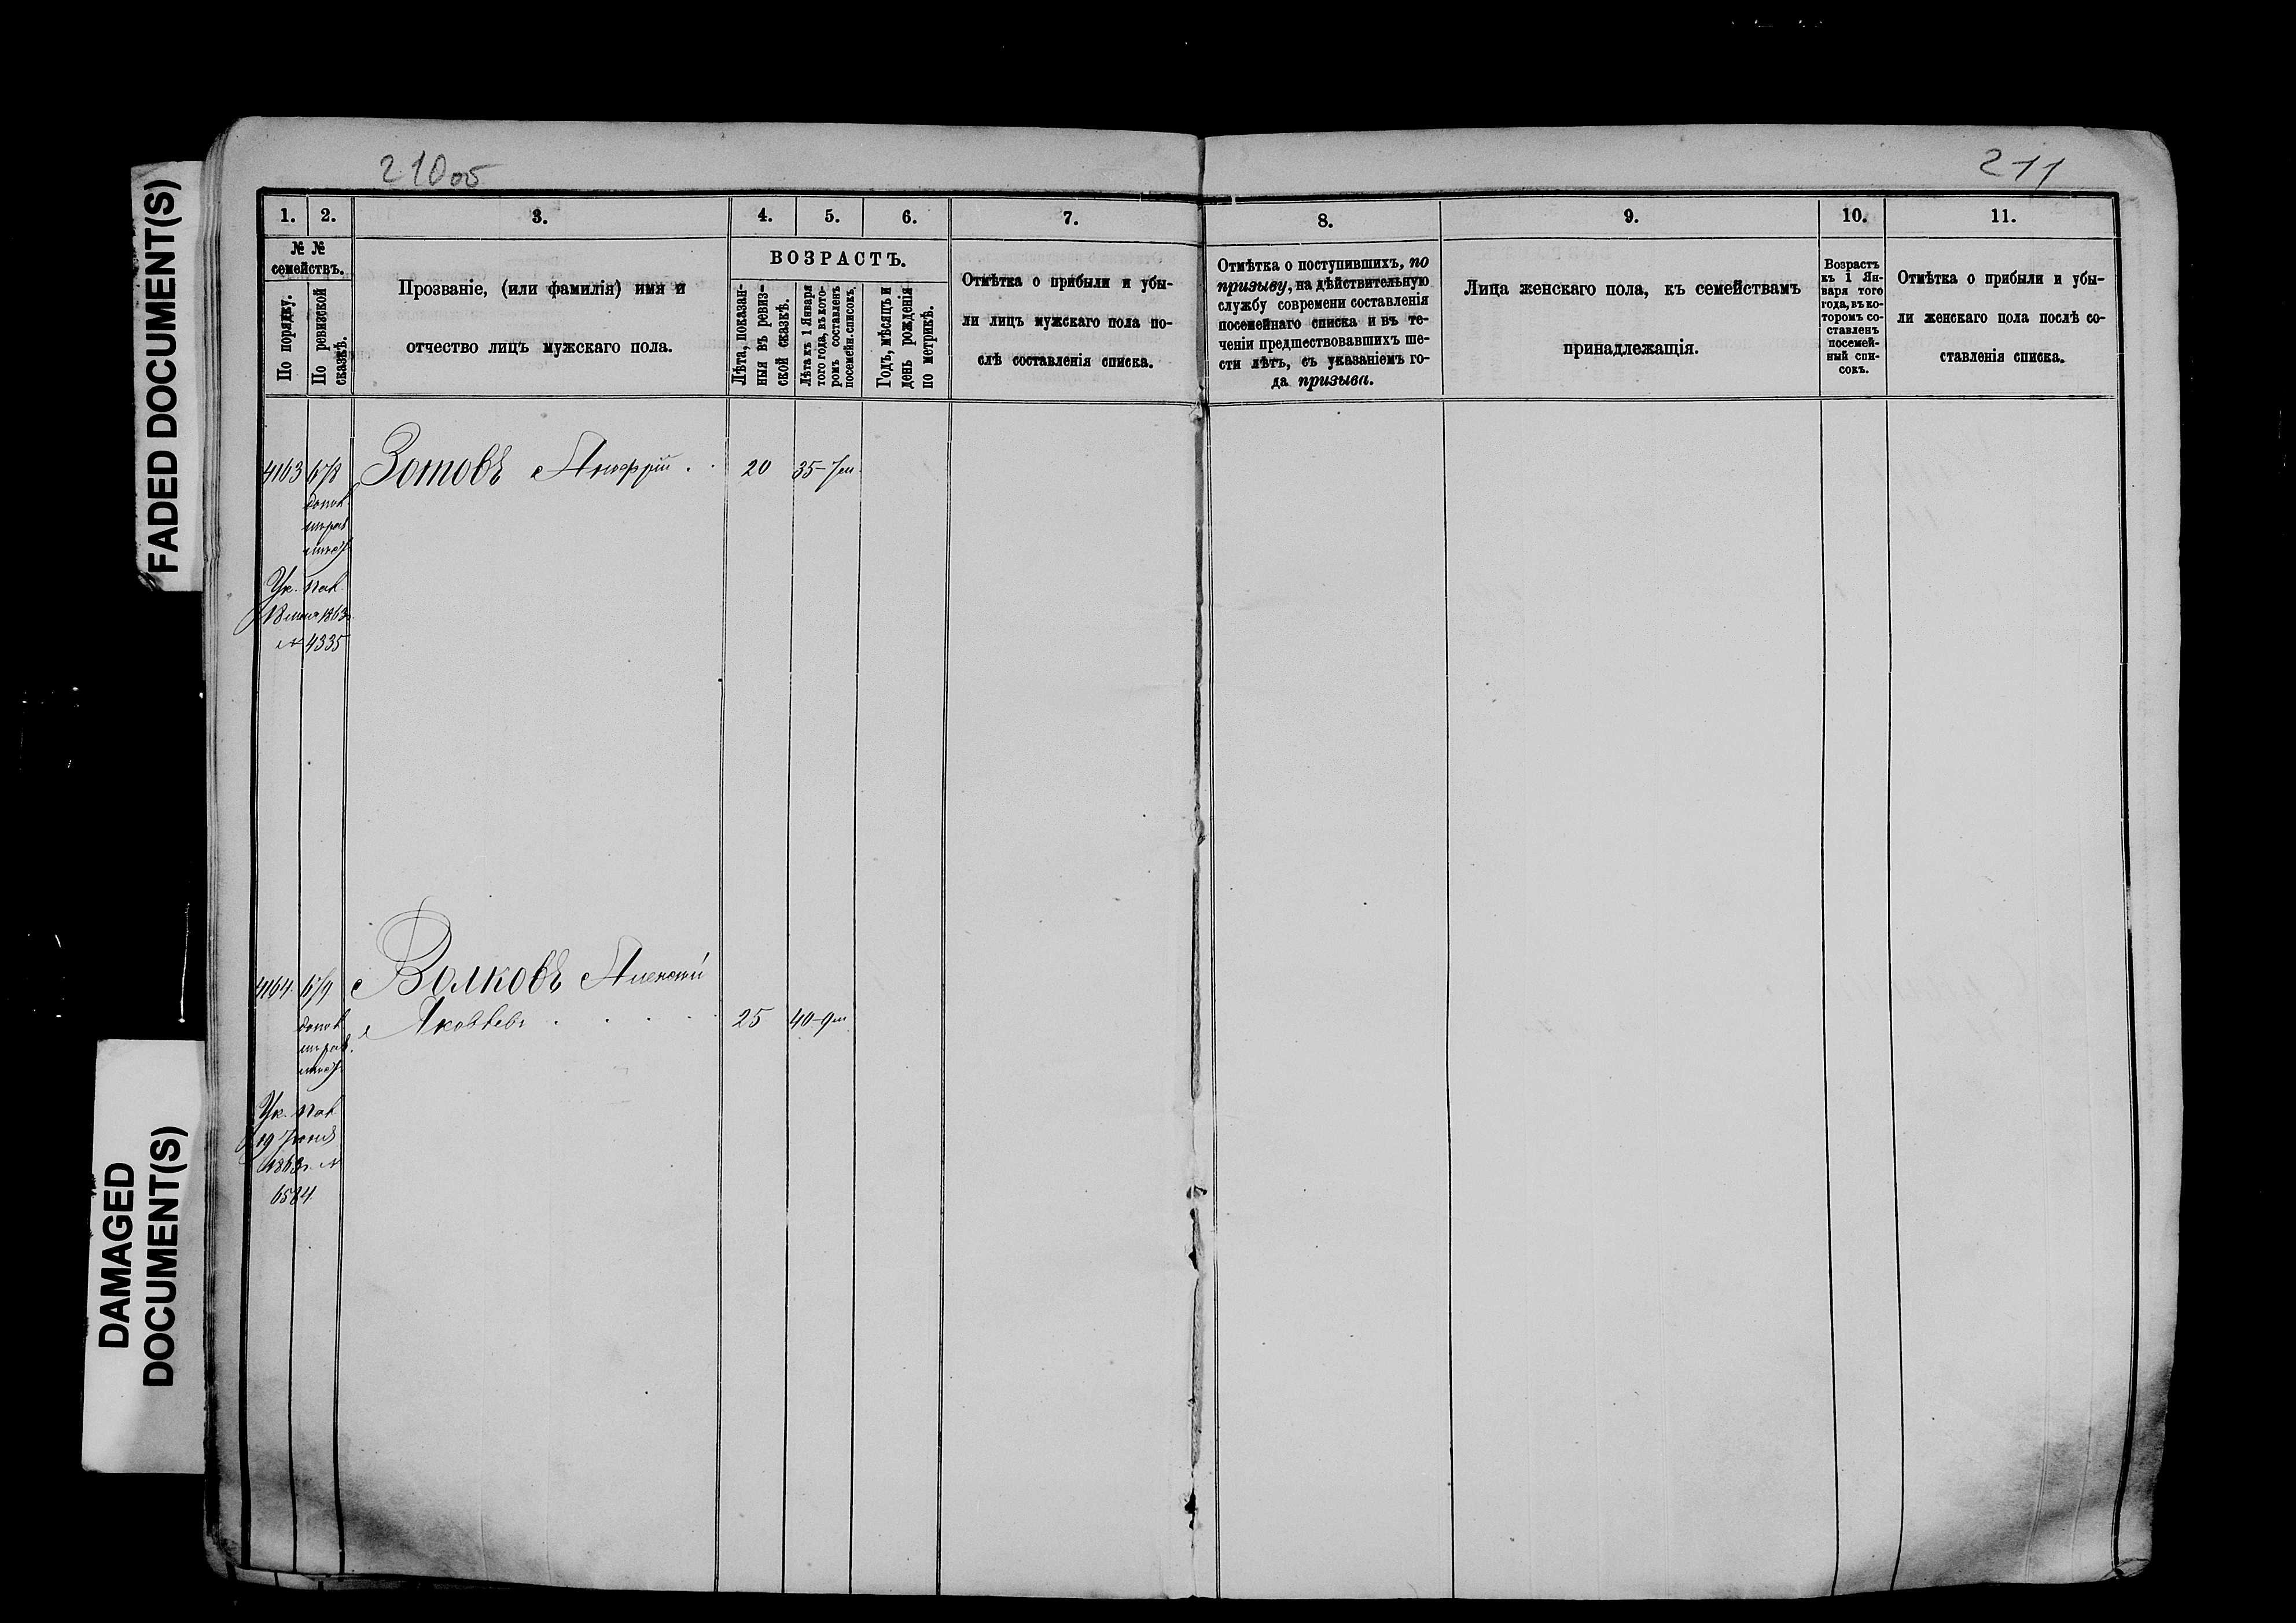 FADED DOCUMENT(S)
DAMAGED
DOCUMENT(S)
210об
211
1. 2. 3. 4. 5. 6. 7. 8. 9. 10. 11.
№ №
семействъ.
По порядку.
По ревизской
сказкѣ.
Прозваніе, (или фамилія) имя и
отчество лицъ мужскаго пола.
ВОЗРАСТЪ.
Лѣта, показан-
ныя въ ревиз-
ской сказкѣ.
Лѣта къ 1 Января
того года, въ кото-
ромъ составленъ
посемейн. списокъ.
Годъ, мѣсяцъ и
день рожденія
по метрикѣ.
Отмѣтка о прибыли и убы-
ли лицъ мужскаго пола по-
слѣ составленія списка.
Отмѣтка о поступившихъ, по
призыву, на дѣйствительную
службу современи составленія
посемейнаго списка и въ те-
ченіи предшествовавшихъ ше-
сти лѣтъ, съ указаніемъ го-
да призыва.
Лица женскаго пола, къ семействамъ
принадлежащія.
Возрастъ
къ 1 Ян-
варя того
года, въ ко-
торомъ со-
ставленъ
посемей-
ный спи-
сокъ.
Отмѣтка о прибыли и убы-
ли женскаго пола послѣ со-
ставленія списка.
4163 Зотовъ 20 35-7м
Ук.
1863
№ 4335
4164 Волковъ Алексѣй
Яковлевъ 25 40-9м
Ук.
19 Іюня
1863г. №
6584